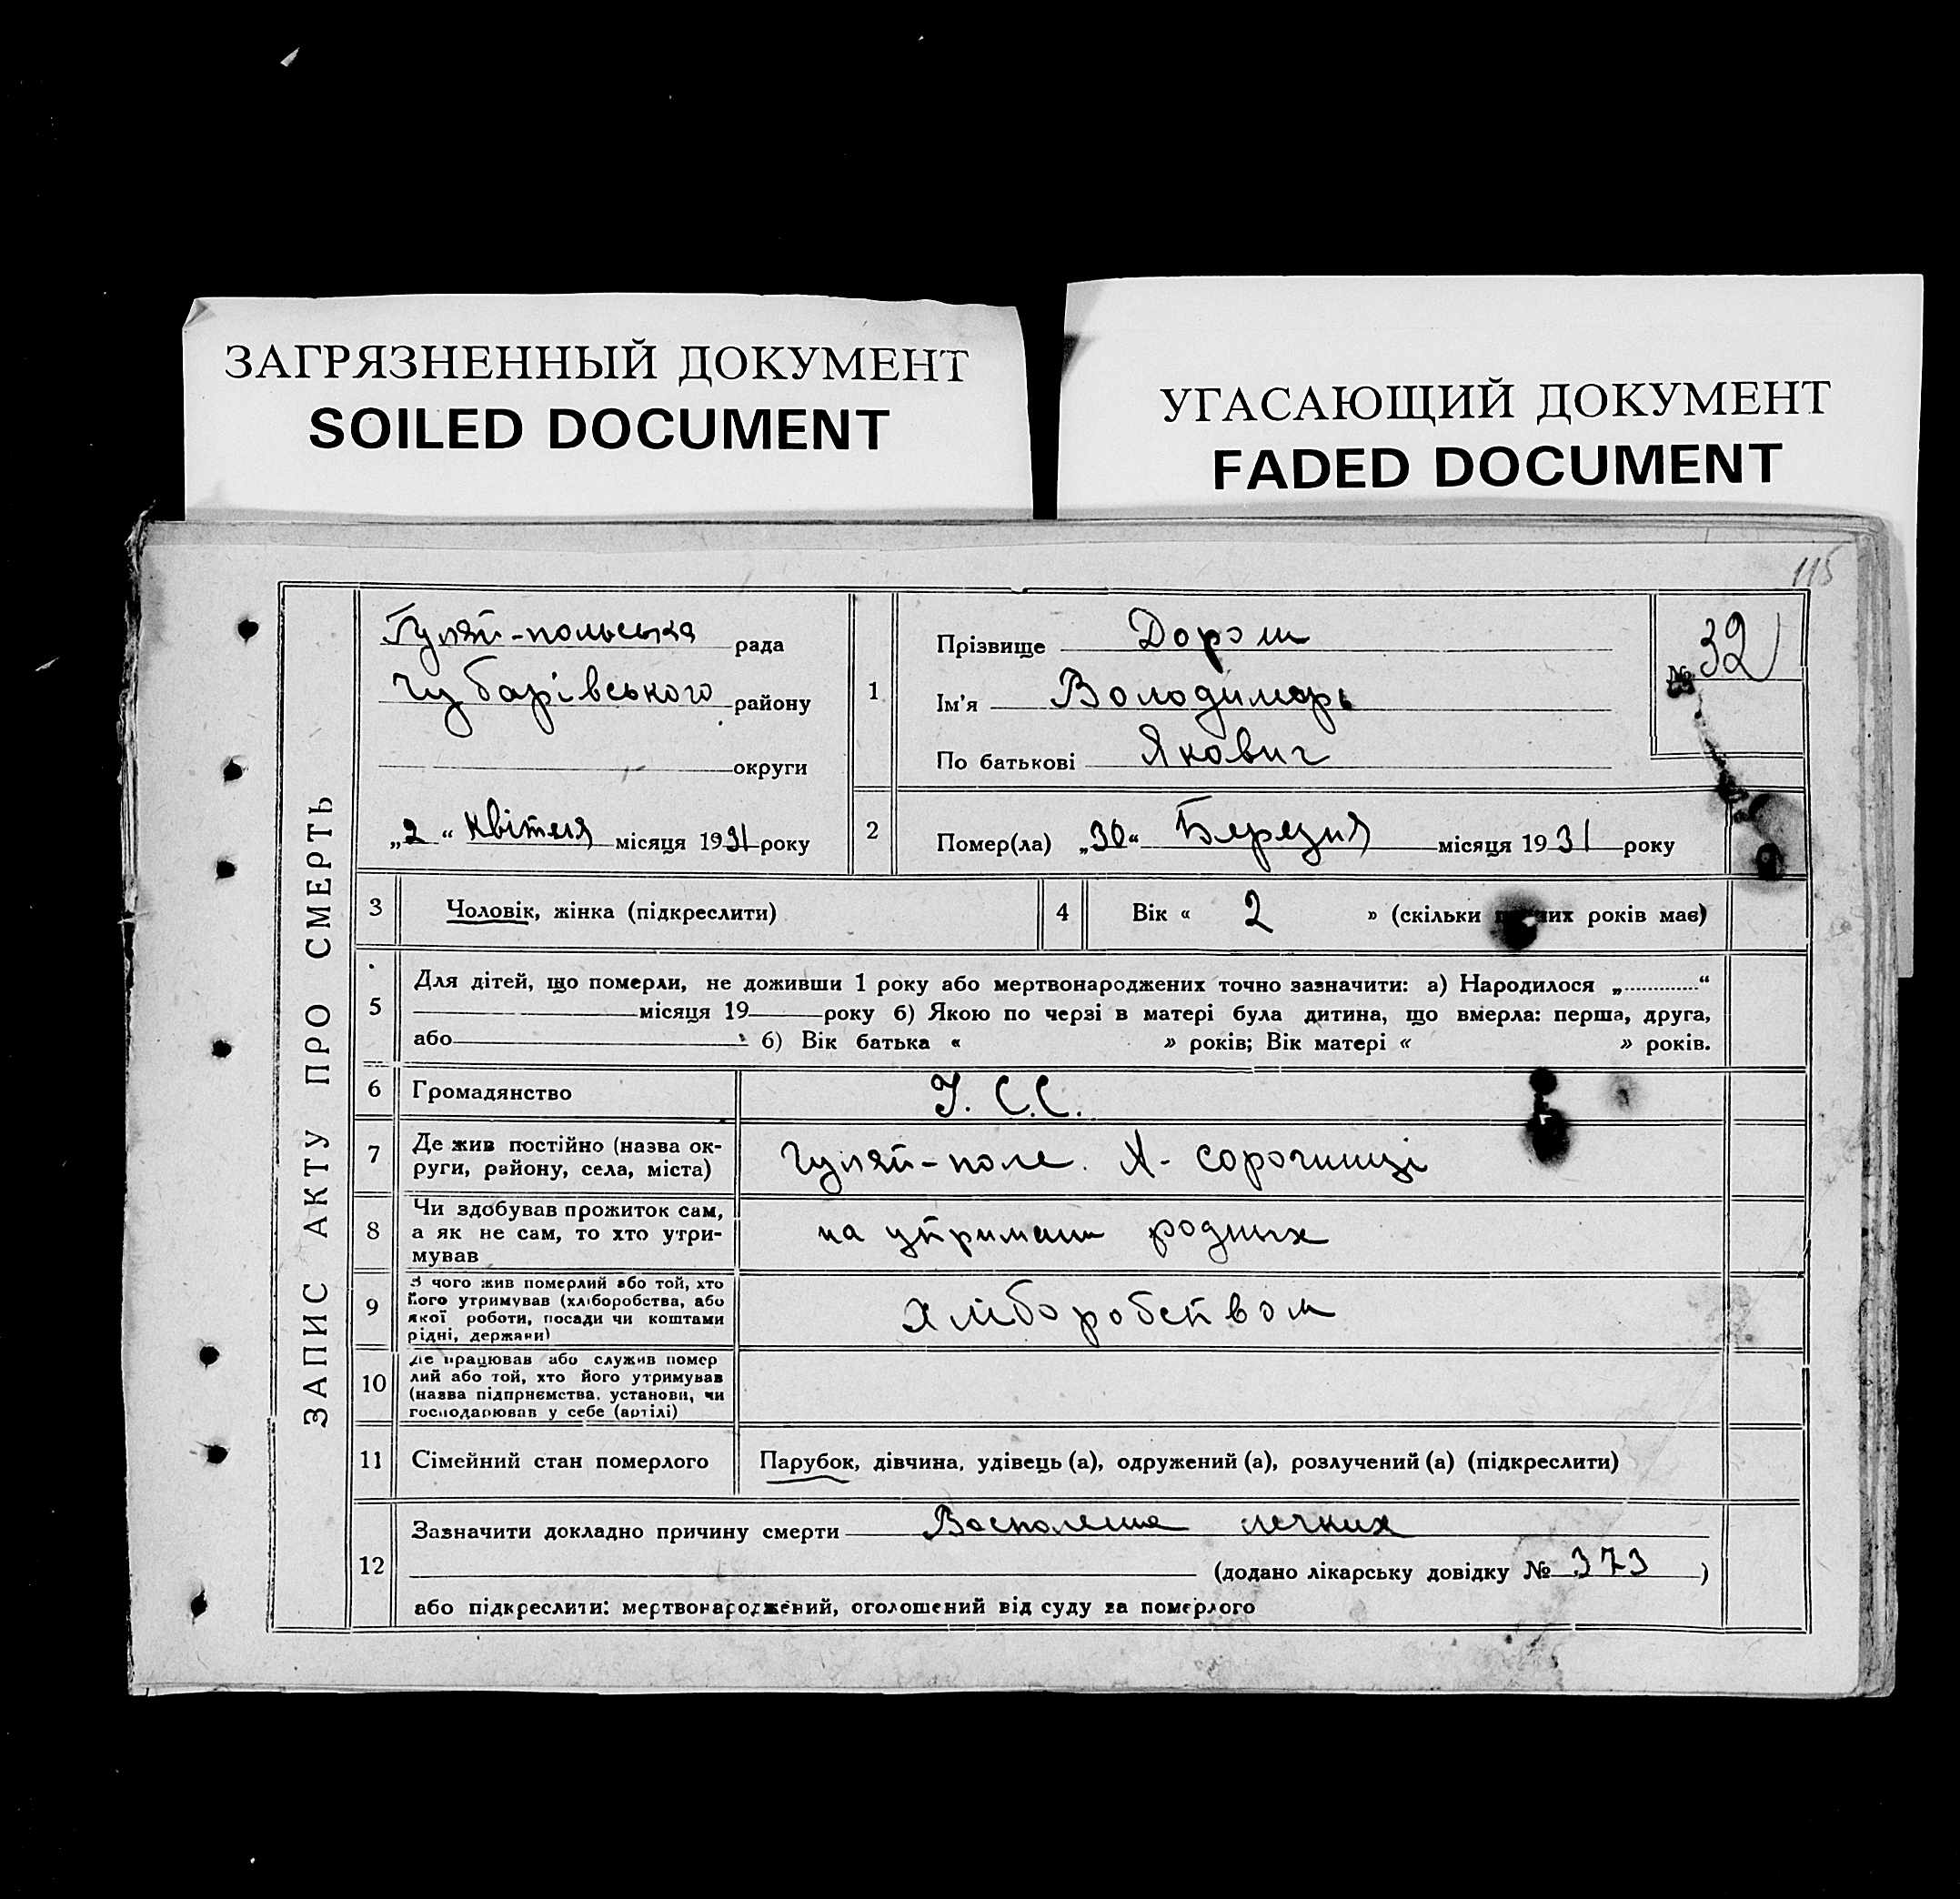 ЗАГРЯЗНЕННЫЙ ДОКУМЕНТ
SOILED DOCUMENT
УГАСАЮЩИЙ ДОКУМЕНТ
FADED DOCUMENT
115
ЗАПИС АКТУ ПРО СМЕРТЬ
Гуляй-польська рада
Чубарівського району
округи
„2“ Квітня місяця 1931 року
1
Прізвище Дорош
Ім'я Володимирь
По батькові Якович
№ 32
2
Помер(ла) „30“ Березня місяця 1931 року
3 Чоловік, жінка (підкреслити)
4 Вік « 2 » (скільки років має)
5
Для дітей, що померли, не доживши 1 року або мертвонароджених точно зазначити: а) Народилося „ “
місяця 19 року б) Якою по черзі в матері була дитина, що вмерла: перша, друга,
або б) Вік батька « » років; Вік матері « » років.
6 Громадянство У. С.С.
7 Де жив постійно (назва ок-
руги, району, села, міста)
Гуляй-поле. Х- сорочинці
8 Чи здобував прожиток сам,
а як не сам, то хто утри-
мував
на утримани родних
9 З чого жив померлий або той, хто
його утримував (хліборобства, або
якої роботи, посади чи коштами
рідні, держави)
Хліборобством
10 Де працював або служив помер
лий або той, хто його утримував
(назва підприємства, установи, чи
господарював у себе (артілі)
11 Сімейний стан померлого
Парубок, дівчина, удівець (а), одружений (а), розлучений (а) (підкреслити)
12
Зазначити докладно причину смерти Восполение легких
(додано лікарську довідку № 373 )
або підкреслити: мертвонароджений, оголошений від суду за померлого